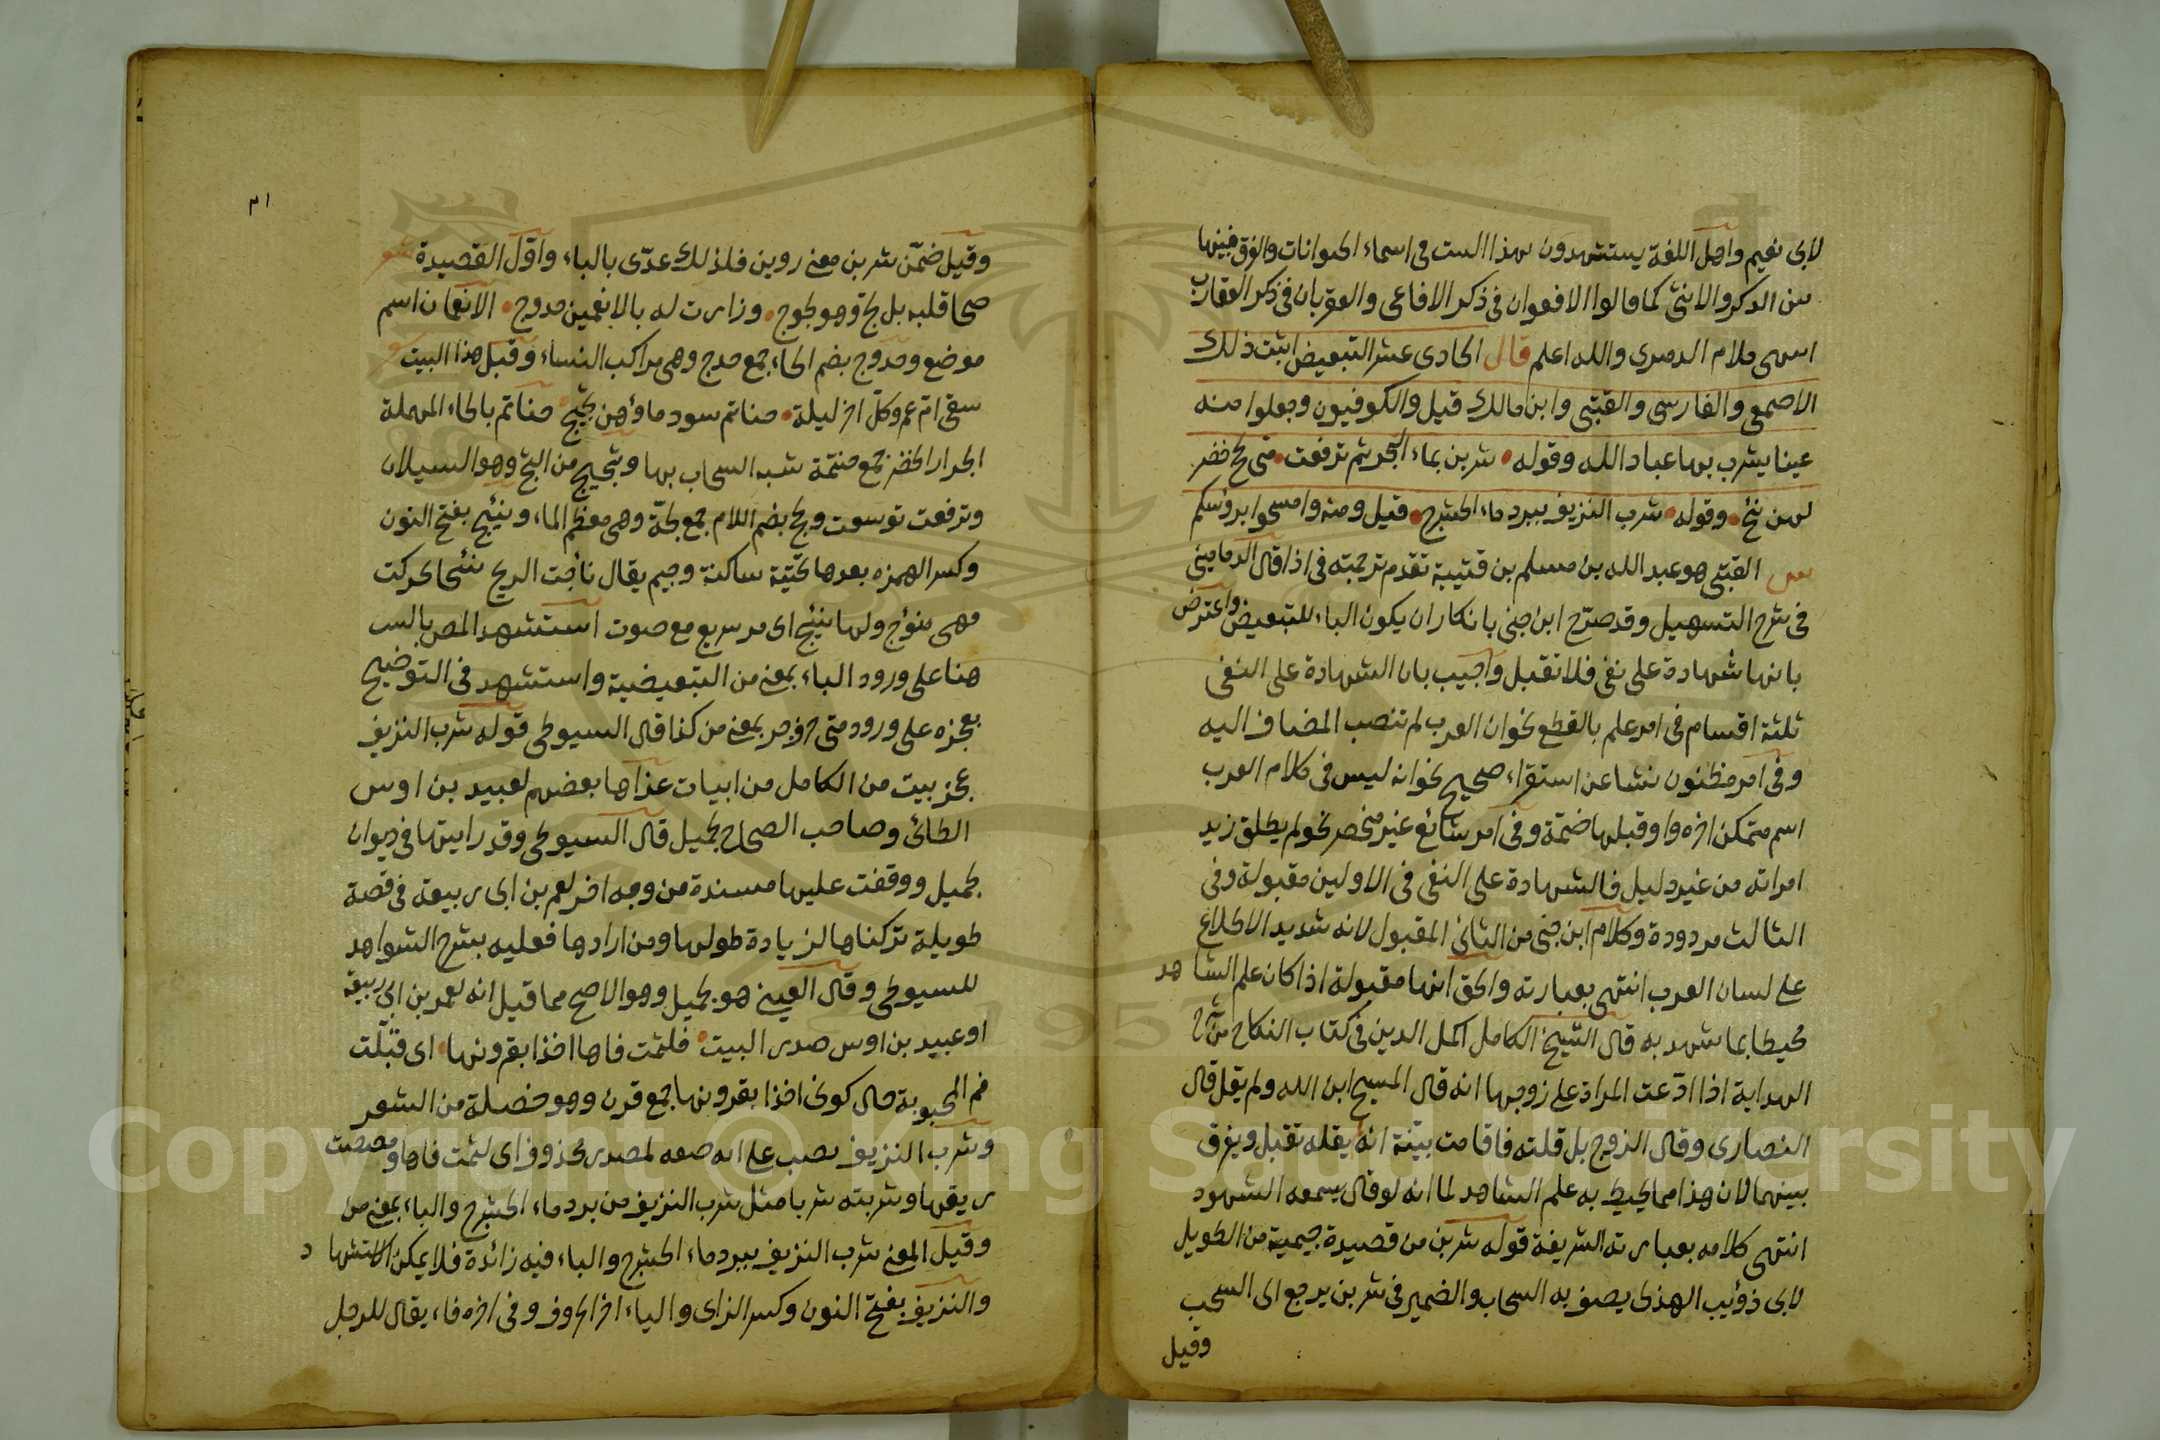 لابى نعيم واهل اللغة يستشهدون بهذا البيت فى اسماء الحيوانات والفرق فيها
بين الذكر والانثى كما قالوا الافعوان فى ذكر الافاعى والعقربان فى ذكر العقارب
انتهى كلام الدميرى والله اعلم قال الحادى عشر التبعيض اثبت ذلك
الاصمعى والفارسى والقتبى وابن مالك قيل والكوفيون وجعلوا منه
عينا يشرب بها عباد الله وقوله شربن بماء البحر ثم ترفعت متى لجج خضر
لهن نئيج وقوله شرب النزيف ببرد ماء الحشرج قيل ومنه وامسحوا برؤسكم
س القتبى هو عبد الله بن مسلم بن قتيبة تقدم ترجمته فى اذا قال الدمامينى
فى شرح التسهيل وقد صرح ابن جنى بانكار ان يكون الباء للتبعيض واعترض
بانها شهادة على نفى فلا تقبل واجيب بان الشهادة على النفى
ثلثة اقسام فى امر علم بالقطع نحو ان العرب لم تنصب المضاف اليه
وفى امر مظنون نشا عن استقراء صحيح نحو انه ليس فى كلام العرب
اسم متمكن اخره واو قبلها ضمة وفى امر شائع غير منحصر نحو لم يطلق زيد
امراته من غير دليل فالشهادة على النفى فى الاولين مقبولة وفى
الثالث مردودة وكلام ابن جنى من الثانى المقبول لانه شديد الاطلاع
على لسان العرب انتهى بعبارته والحق انها مقبولة اذا كان علم الشاهد
محيطا بما شهد به قال الشيخ الكامل اكمل الدين فى كتاب النكاح من شرح
الهداية اذا ادعت المراة على زوجها انه قال المسيح ابن الله ولم يقل قال
النصارى وقال الزوج بل قلته فاقامت بينة انه لم يقله تقبل ويفرق
بينهما لان هذا مما يحيط به علم الشاهد لما انه لو قال يسمعه الشهود
انتهى كلامه بعبارته الشريفة قوله شربن من قصيدة جيمية من الطويل
لابى ذؤيب الهذلى يصف به السحاب والضمير فى شربن يرجع الى السحب
وقيل
٣١
وقيل ضمن شربن معنى روين فلذلك عدى بالباء واول القصيدة شعر
صحا قلبه بل لج وهو لجوج وزارت له بالانعمين حدوج الانعمان اسم
موضع وحدوج بضم الحاء جمع حدج وهى مراكب النساء وقبل هذا البيت
سقى ام عمرو كل اخر ليلة حناتم سود ماؤهن ثجيج حناتم بالحاء المهملة
الجرار الخضر جمع حنتمة شبه السحاب بها وثجيج من الثج وهو السيلان
وترفعت توسعت ولجج بضم اللام جمع لجة وهى معظم الماء ونئيج بفتح النون
وكسر الهمزه بعدها تحتية ساكنة وجيم يقال نأجت الريح نئجا تحركت
فهى نئوج ولها نئيج اى مر سريع مع صوت استشهد المص بالبيت
هنا على ورود الباء بمعنى من التبعيضية واستشهد فى التوضيح
بعجزه على ورود متى حرف جر بمعنى من كذا قال السيوطى قوله شرب النزيف
عجز بيت من الكامل من ابيات عزاها بعضهم لعبيد بن اوس
الطائى وصاحب الصحاح لجميل قال السيوطى وقد رايتها فى ديوان
جميل ووقفت عليها مسندة من وجه اخر لعمر بن ابى ربيعة فى قصة
طويلة تركناها لزيادة طولها ومن ارادها فعليه بشرح الشواهد
للسيوطى وقال العينى هو لجميل وهو الاصح مما قيل انه لعمر بن ابى ربيعة
او عبيد بن اوس صدر البيت فلثمت فاها اخذا بقرونها اى قبلت
فم المحبوبة حال كونى اخذا بقرونها جمع قرن وهو خصلة من الشعر
وشرب النزيف نصب على انه صفه لمصدر محذوف اى لثمت فاها ومصصت
ريقها وشربته شربا مثل شرب النزيف من برد ماء الحشرج والباء بمعنى من
وقيل المعنى شرب النزيف ببرد ماء الحشرج والباء فيه زائدة فلا يمكن الاستشهاد
والنزيف بفتح النون وكسر الزاى والياء اخر الحروف وفى اخره فاء يقال للرجل
Copyright © King Saud University
1957